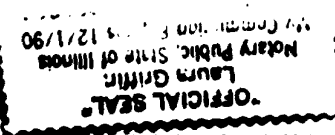 "OFFICIAL SEAL"
Laura Griffin
Notary Public, State of Illinois
My Commission Expires 12/1/90